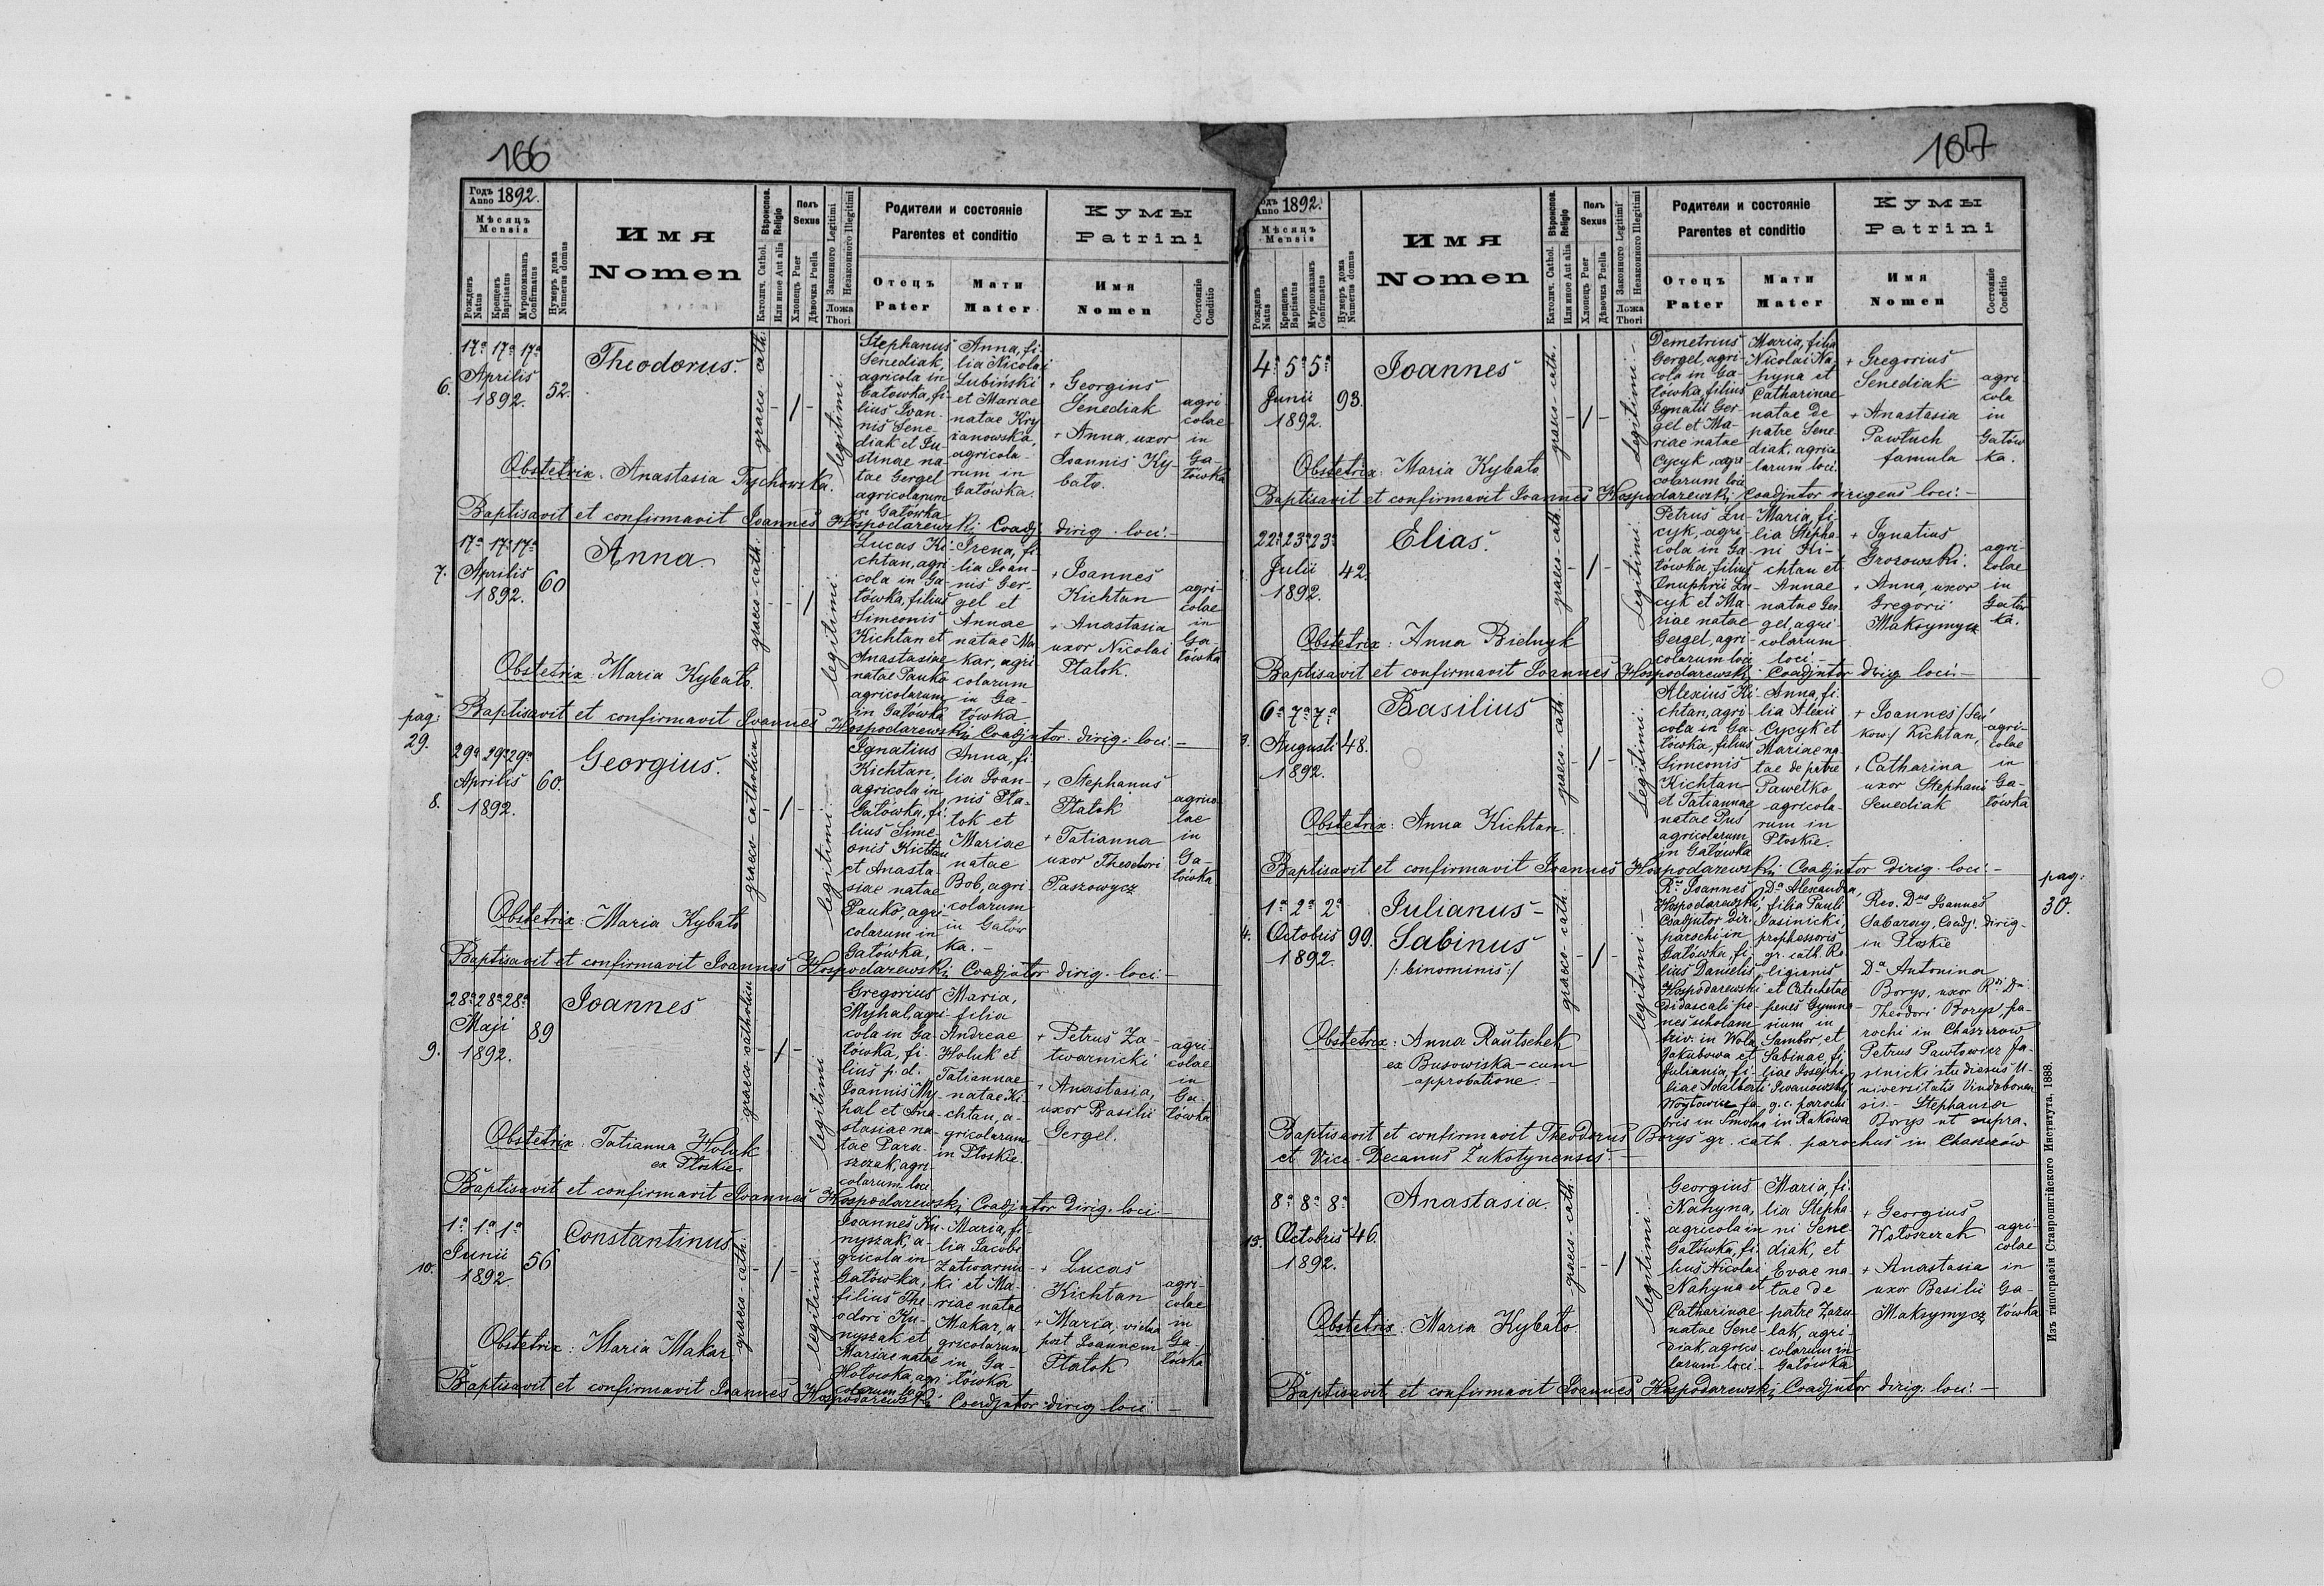 166
Годъ Anno 1892.
Мѣсяцъ
Mensis
Рожденъ Natus
Крещенъ Baptisatus
Муропомазанъ Confirmatus
Нумеръ дома Numerus domus
Имя
Nomen
Католич. Cathol. Вѣроисповѣд. Religio
Или иное Aut alia
Полъ
Sexus
Хлопецъ Puer
Дѣвочка Puella
Законного Legitimi
Незаконного Illegitimi
Ложа
Thori
Родители и состояніе
Parentes et conditio
Отецъ
Pater
Мати
Mater
Кумы
Patrini
Имя
Nomen
Состояніе
Conditio
6.
17ª 17ª 17ª
Aprilis
1892.
52.
Theodorus.
graeco cath.
legitimi.
Stephanus
Senediak,
agricola in
Gatówka, fi-
lius Joan-
nis Sene-
diak et Ju-
stinae na-
tae Gergel
agricolarum
in Gatówka
Anna, fi-
lia Nicolai
Lubiński
et Mariae
natae Kry
żanowska,
agricola-
rum in
Gatówka.
+ Georgius
Senediak
+ Anna, uxor
Joannis Ky-
bato.
agri
colae
in
Ga-
tówka
Obstetrix. Anastasia Tychowska.
Baptisavit et confirmavit Joannes Hospodarewski Coadj. dirig. loci.-
7.
17ª 17ª 17ª
Aprilis
1892.
60
Anna
graeco-cath.
legitimi.
Lucas Ki-
chtan, agri
cola in Ga-
tówka, filius
Simeonis
Kichtan et
Anastasiae
natae Pauko
agricolarum
in Gatówka
Irena, fi-
lia Joan-
nis Ger-
gel et
Annae
natae Ma
kar, agri
colarum
in Ga-
tówka
+ Joannes
Kichtan
+ Anastasia
uxor Nicolai
Ptatok.
agri-
colae
in
Ga-
tówka
Obstetrix: Maria Kybato.
Baptisavit et confirmavit Joannes Hospodarewski Coadjutor. dirig. loci -
pag:
29.
8.
29ª 29ª 29ª
Aprilis
1892.
60.
Georgius.
graeco-catholica
legitimi.-
Ignatius
Kichtan,
agricola in
Gatówka, fi-
lius Sime-
onis Kichtan
et Anasta-
siae natae
Pauko, agri-
colarum in
Gatówka,
Anna, fi-
lia Joan-
nis Pta-
tok et
Mariae
natae
Bob, agri-
colarum
in Gatów
ka.-
+ Stephanus
Ptatok
+ Tatianna
uxor Theodori
Paszowycz
agrico
lae
in
Ga-
tówka
Obstetrix: Maria Kybato
Baptisavit et confirmavit Joannes Hospodarewski Coadjutor dirig. loci.-
9.
28ª 28ª 28ª
Maji
1892.
89
Joannes
graeco-catholica
legitimi
Gregorius
Myhal, agri-
cola in Ga-
tówka, fi-
lius p. d.
Joannis My-
hal et Ana-
stasiae na-
tae Para-
szczak, agri-
colarum loci
Maria,
filia
Andreae
Holuk et
Tatiannae
natae Ki-
chtan, a-
gricolarum
in Ptoskie.
+ Petrus Za-
twarnicki
+ Anastasia,
uxor Basilii
Gergel.
agri-
colae
in
Ga-
tówka
Obstetrix: Tatianna Holuk
ex Ptoskie
Baptisavit et confirmavit Joannes Hospodarewski Coadjutor Dirig. loci -
10.
1ª 1ª 1ª
Junii
1892
56
Constantinus
graeco-cath.
legitimi.
Joannes Ku-
nyszak, a-
gricola in
Gatówka,
filius The-
odori Ku-
nyszak et
Mariae natae
Hotowka, agri-
colarum loci
Maria, fi-
lia Jacobi
Zatwarnic-
ki et Ma-
riae natae
Makar, a-
gricolarum
in Ga-
tówka
+ Lucas
Kichtan
+ Maria, vidua
post Joannem
Ptatok
agri-
colae
in
Ga-
tówka
Obstetrix: Maria Makar
Baptisavit et confirmavit Joannes Hospodarewski Coadjutor dirig. loci -
167
Годъ Anno 1892.
Мѣсяцъ
Mensis
Рожденъ Natus
Крещенъ Baptisatus
Муропомазанъ Confirmatus
Нумеръ дома Numerus domus
Имя
Nomen
Католич. Cathol. Вѣроисповѣд. Religio
Или иное Aut alia
Полъ
Sexus
Хлопецъ Puer
Дѣвочка Puella
Законного Legitimi
Незаконного Illegitimi
Ложа
Thori
Родители и состояніе
Parentes et conditio
Отецъ
Pater
Мати
Mater
Кумы
Patrini
Имя
Nomen
Состояніе
Conditio
4ª 5ª 5ª
Junii
1892.
93.
Joannes
graeco-cath.
legitimi.-
Demetrius
Gergel, agri-
cola in Ga-
tówka, filius
Ignatii Ger-
gel et Ma-
riae natae
Cycyk, agri
colarum loci
Maria, filia
Nicolai Na-
hyna et
Catharinae
natae de
patre Sene
diak, agrico
larum loci.
+ Gregorius
Senediak
+ Anastasia
Pawtuch
famula
agri
cola
in
Gatów
ka.
Obstetrix: Maria Kybato
Baptisavit et confirmavit Joannes Hospodarewski, Coadjutor dirigens loci.-
22ª 23ª 23ª
Julii
1892.
42.
Elias.
graeco-cath.
Legitimi.
Petrus Lu-
cyk, agri-
cola in Ga-
tówka, filius
Onuphrii Lu-
cyk et Ma-
riae natae
Gergel, agri-
colarum loci
Maria, fi-
lia Stepha-
ni Ki-
chtan et
Annae
natae Ger
gel, agri-
colarum
loci -
+ Ignatius
Grozowski.
+ Anna, uxor
Gregorii
Maksymycz
agri-
colae
in
Gatów
ka.
Obstetrix: Anna Bielnyk
Baptisavit et confirmavit Joannes Hospodarewski Coadjutor dirig. loci.-
3.
6ª 7ª 7ª
Augusti
1892.
48.
Basilius
graeco cath.
Legitimi.
Alexius Ki-
chtan, agri-
cola in Ga-
tówka, filius
Simeonis
Kichtan
et Tatiannae
natae Pus
agricolarum
in Gatówka
Anna, fi-
lia Alexii
Cycyk et
Mariae na-
tae de patre
Pawetko
agricola-
rum in
Ptoskie.
+ Joannes /Sen
kow:/ Kichtan,
+ Catharina
uxor Stephani
Senediak
agri-
colae
in
Ga-
tówka
Obstetrix: Anna Kichtan.
Baptisavit et confirmavit Joannes Hospodarewski Coadjutor Dirig. loci.-
pag:
30.
4.
1ª 2ª 2ª
Octobris
1892.
99.
Julianus-
Sabinus
/: binominis:/
graeco cath.
legitimi.-
Rs. Joannes
Hospodarewski,
Coadjutor dir.
parochi in
Gatówka, fi-
lius Danielis
Hospodarewski
didascali pe-
nes scholam
triv. in Wola
Jakubowa et
Juliania, fi-
liae Adalberti
Woytowicz fa-
bris in Smolna
Dª Alexandra,
filia Pauli
Jasinicki,
prophessoris
gr. cath. Re
ligionis
et Catechetae
penes Gymna-
sium in
Sambor, et
Sabinae, fi-
liae Josephi
Iwanowski
g. c. parochi
in Rakowa
Rev. Dus Joannes
Sabaray, Coadj. dirig-
in Ptoskie
Dª Antonina
Borys, uxor Rdi Di
Theodori Borys, pa-
rochi in Chaszczow
Petrus Pawtowicz Ja-
sinicki studiosus U-
niversitatis Vindobonen
sis.- Stephania
Borys ut supra.
Obstetrix: Anna Rautschek
ex Busowiska - cum
approbatione.-
Baptisavit et confirmavit Theodorus Borys gr. cath. parochus in Chaszczów
et Vice-Decanus Zukotynensis.-
15.
8ª 8ª 8ª
Octobris
1892.
46.
Anastasia.
graeco-cath.
legitimi.-
Georgius
Nahyna,
agricola in
Gatówka, fi-
lius Nicolai
Nahyna et
Catharinae
natae Sene-
diak, agrico-
larum loci-
Maria, fi-
lia Stepha-
ni Sene-
diak, et
Evae na-
tae de
patre Zazu-
lak, agri-
colarum in
Gatówka
+ Georgius
Wotoszczak
+ Anastasia
uxor Basilii
Maksymycz
agri-
colae
in
Ga-
tówka
Obstetrix: Maria Kybato.
Baptisavit et confirmavit Joannes Hospodarewski Coadjutor dirig. loci.-
Изъ типографіи Ставропигійского Института, 1888.